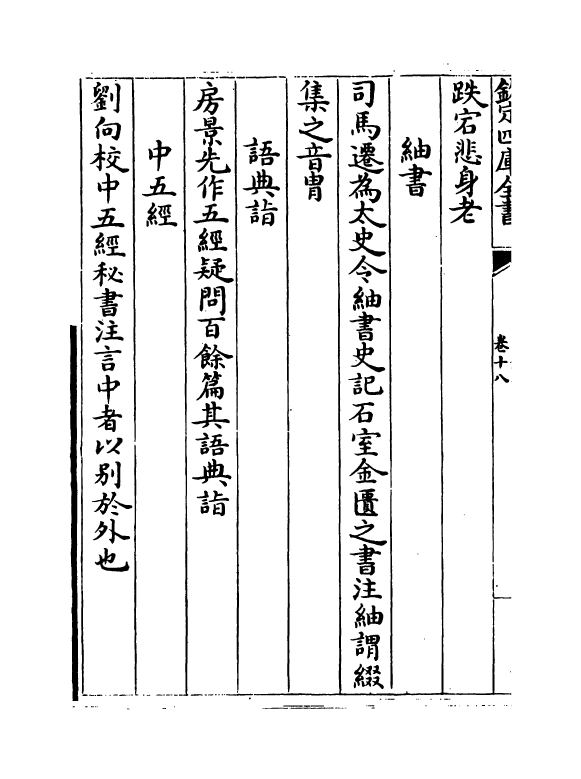 欽定四庫全書
卷十八
跌宕悲身老
紬書
司馬遷為太史令紬書史記石室金匱之書注紬謂綴
集之音胄
語典詣
房景先作五經疑問百餘篇其語典詣
中五經
劉向校中五經秘書注言中者以别於外也